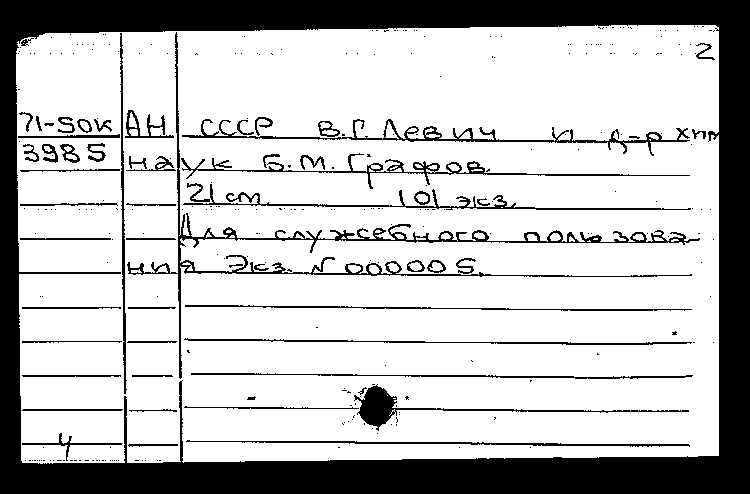 2
71-50К АН СССР В.Г. Левич и д-р хим
3985 наук Б.М. Графов.
21 cm. 101 экз.
Для служебного пользова-
ния Экз. N 000005.
4